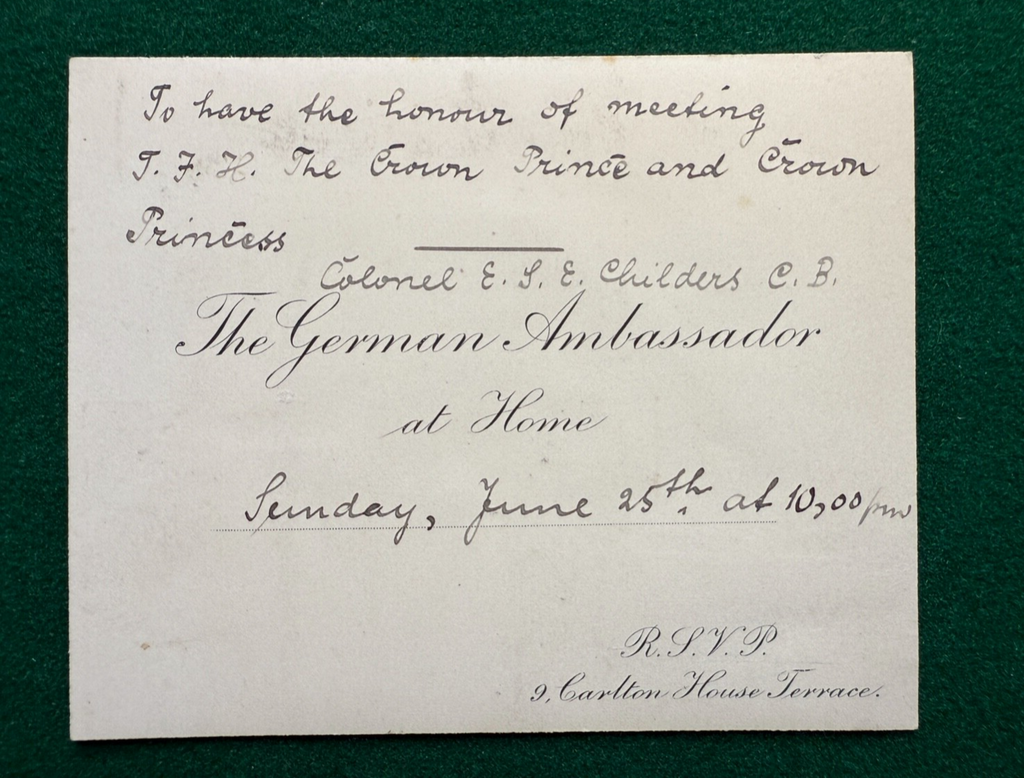 To have the honour of meeting
T. I. H. The Crown Prince and Crown
Princess
Colonel E. S. E. Childers C. B.
The German Ambassador
at Home
Sunday, June 25th. at 10,00 pm
R.S.V.P.
9, Carlton House Terrace.